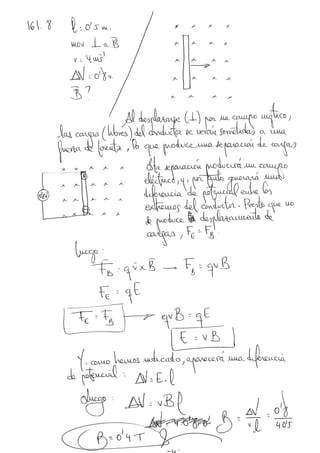 161. 8 l: 0'5 m.
mov ⊥ a B
v: 4 ms⁻¹
ΔV: 0'8 v.
B?
Al desplazarse (⊥) por un campo mgtico,
las cargas (libres) del conductor se verán sometidas a una
fuerza de Lorentz, lo que produce una separación de cargas
Esta separación producirá un campo
eléctrico, y, por tanto generará una
diferencia de potencial entre los
extremos del conductor. Puesto que no
se produce desplazamiento de
cargas, F_E = F_B
Luego:
F_B = q v x B → F_B = qvB
F_E = qE
F_E = F_B → qvB = qE
E = vB
Y, como hemos indicado, aparecerá una diferencia
de potencial: ΔV = E·l
Luego: ΔV = vBl
B = ΔV / v·l = 0'8 / 4·0'5
B = 0'4 T